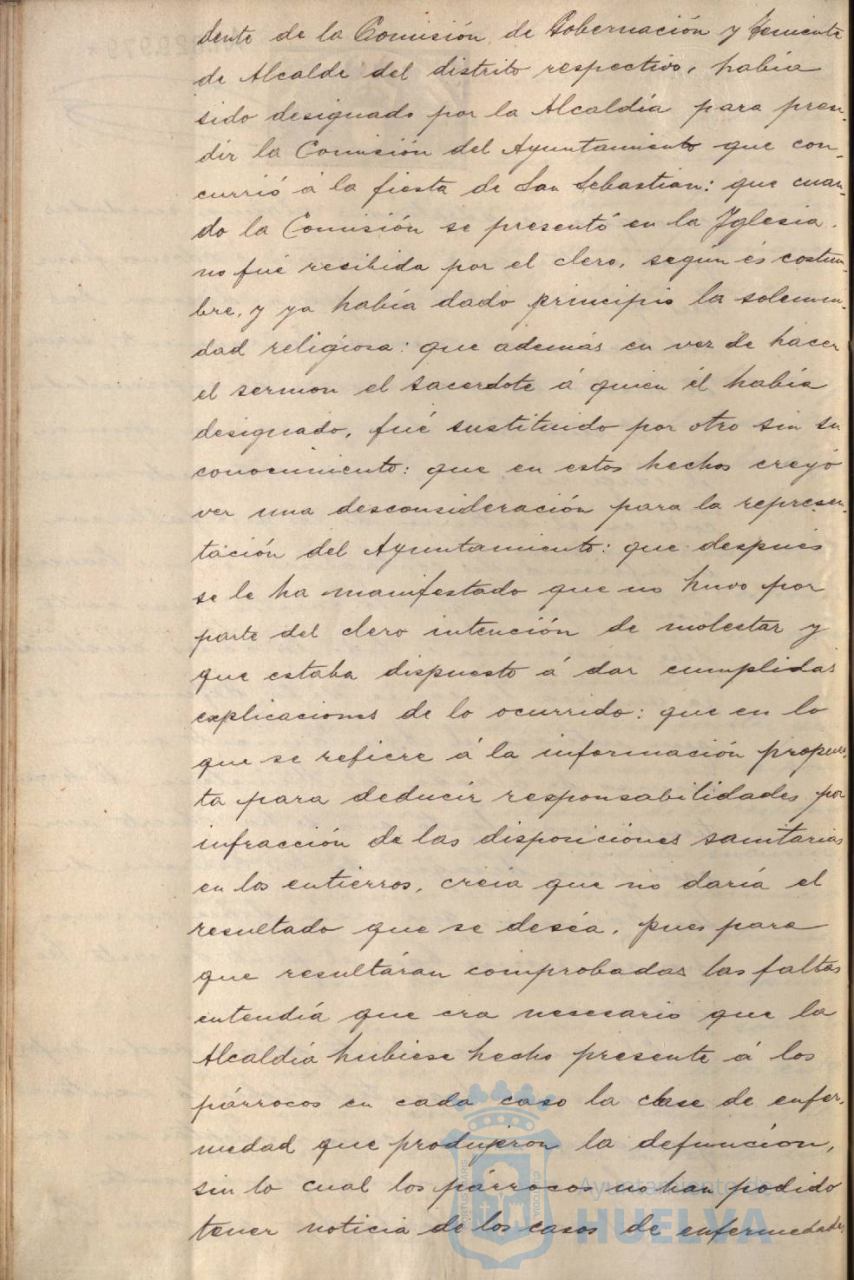 dente de la Comisión de Gobernación y Teniente
de Alcalde del distrito respectivo, había
sido designado por la Alcaldía para presi-
dir la Comisión del Ayuntamiento que con-
currió á la fiesta de San Sebastian: que cuan-
do la Comisión se presentó en la Iglesia,
no fué recibida por el clero, según és costum-
bre, y ya había dado principio la solemni-
dad religiosa: que además en vez de hacer
el sermon el sacerdote á quien él había
designado, fué sustituido por otro sin su
conocimiento: que en estos hechos creyó
ver una desconsideración para la represen-
tación del Ayuntamiento: que después
se le ha manifestado que no huvo por
parte del clero intención de molestar y
que estaba dispuesto á dar cumplidas
explicaciones de lo ocurrido: que en lo
que se refiere á la información propues-
ta para deducir responsabilidades por
infracción de las disposiciones sanitarias
en los entierros, creia que no daría el
resultado que se deséa, pues para
que resultáran comprobadas las faltas
entendía que era nesesario que la
Alcaldía hubiese hecho presente á los
párrocos en cada caso la clase de enfer-
medad que produjeron la defunción,
sin lo cual los párrocos no han podido
tener noticia de los casos de enfermedades
Ayuntamiento de
HUELVA